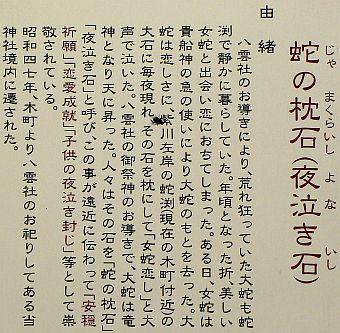 じゃ まくらいし よな いし
蛇の枕石(夜泣き石)
由緒
八雲社のお導きにより、荒れ狂っていた大蛇も蛇
渕で静かに暮らしていた。年頃となった折、美しい
女蛇と出会い恋におちてしまった。ある日、女蛇は
貴船神の急の使いにより大蛇のもとを去った。大
蛇は恋しさに、紫川左岸の蛇渕(現在の木町付近)の
大石に毎夜現れ、その石を枕にして「女蛇恋し」と大
声で泣いた。八雲社の御祭神のお導きで、大蛇は竜
神となり天に昇った。人々はその石を「蛇の枕石」
「夜泣き石」と呼び、この事が遠近に伝わって「安穏
祈願」「恋愛成就」「子供の夜泣き封じ」等として崇
敬されている。
昭和四七年、木町より八雲社のお祀りしてある当
神社境内に遷された。